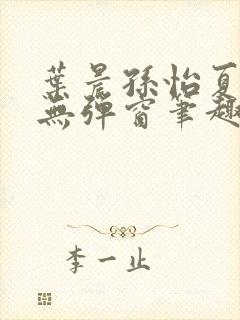 葉晨孫怡夏
無彈窗筆趣
李一止